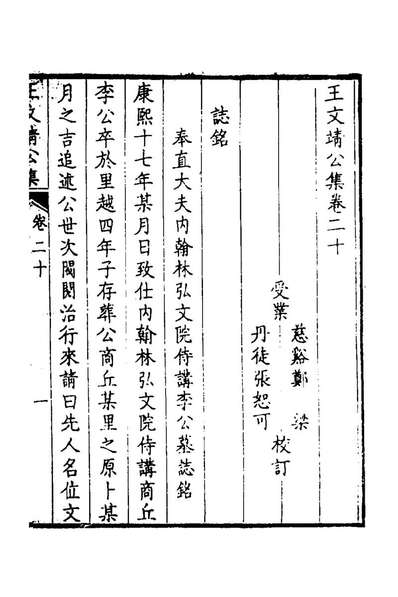 王文靖公集卷二十
慈谿鄭 梁
受業 校訂
丹徒張恕可
誌銘
奉直大夫內翰林弘文院侍講李公墓誌銘
康熙十七年某月日致仕內翰林弘文院侍講商丘
李公卒於里越四年子存葬公商丘某里之原卜某
月之吉追述公世次閥閱治行來請曰先人名位文
王文靖公集
卷二十
一